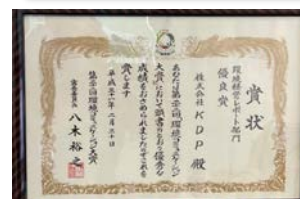 賞状
環境経営レポート部門
優良賞
株式会社 KDP 殿
あなたは第二十二回環境コミュニケーション
大賞において頭書のとおり優秀な
成績をおさめられましたのでこれを
賞します
平成三十一年二月二十日
環境コミュニケーション大賞
審査委員長
八木裕之